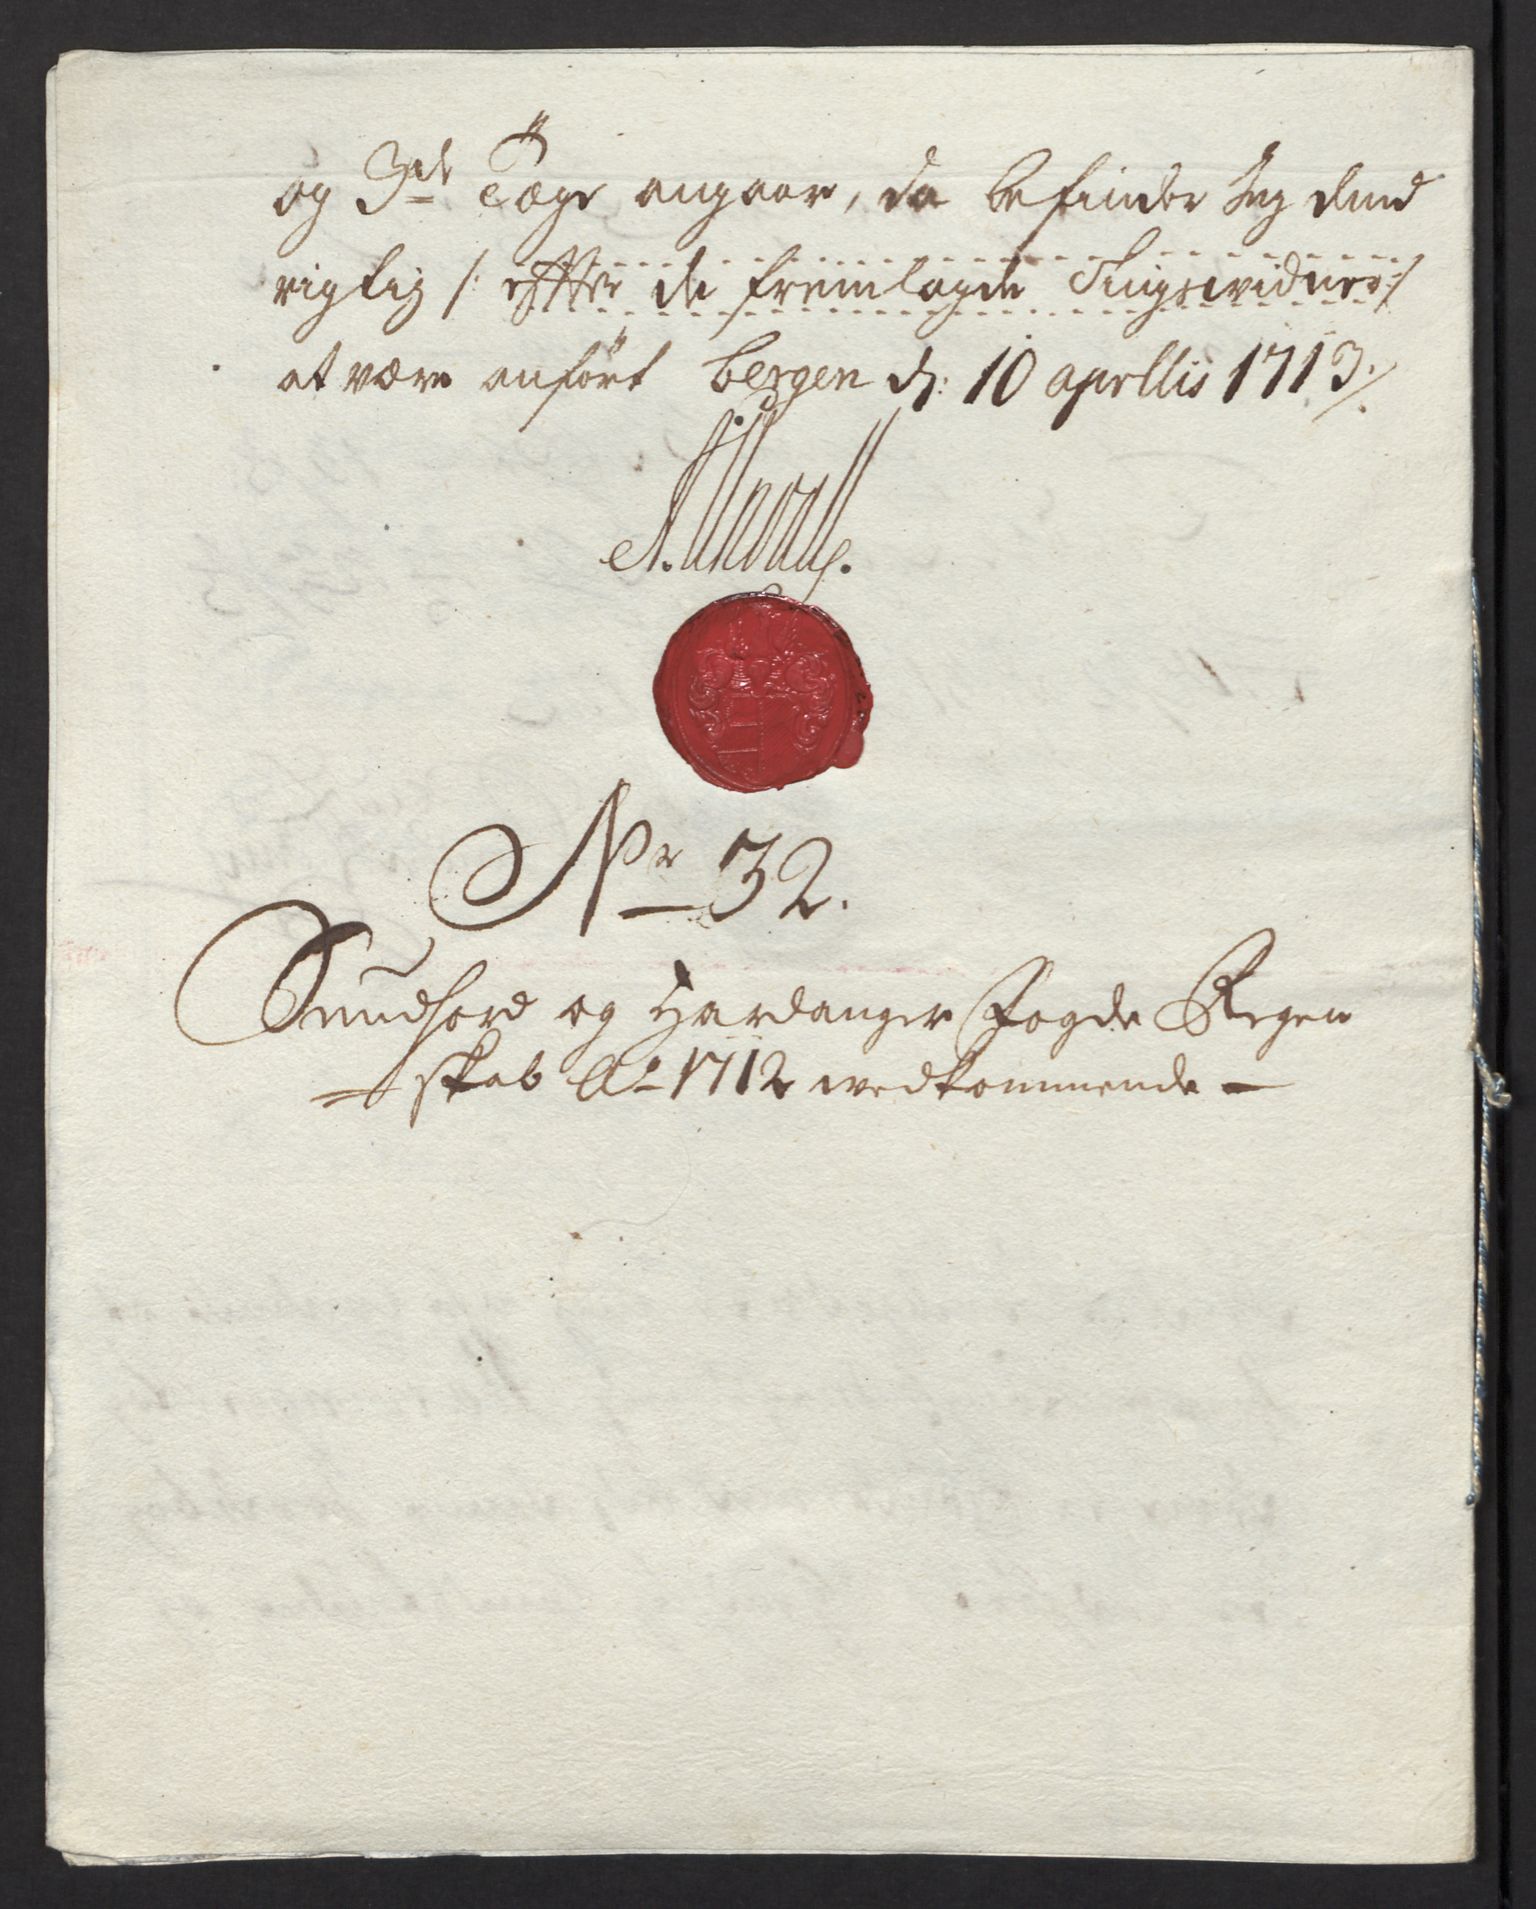 og 3de Töge angaar, da befinder Jeg dend
rigtig /: efter de fremlagde Tingswidner :/
at være anfört Bergen d: 10 aprilis 1713.
No 32.
Sundhord og Hardanger Fogde Regen
skab Ao 1712 wedkommende